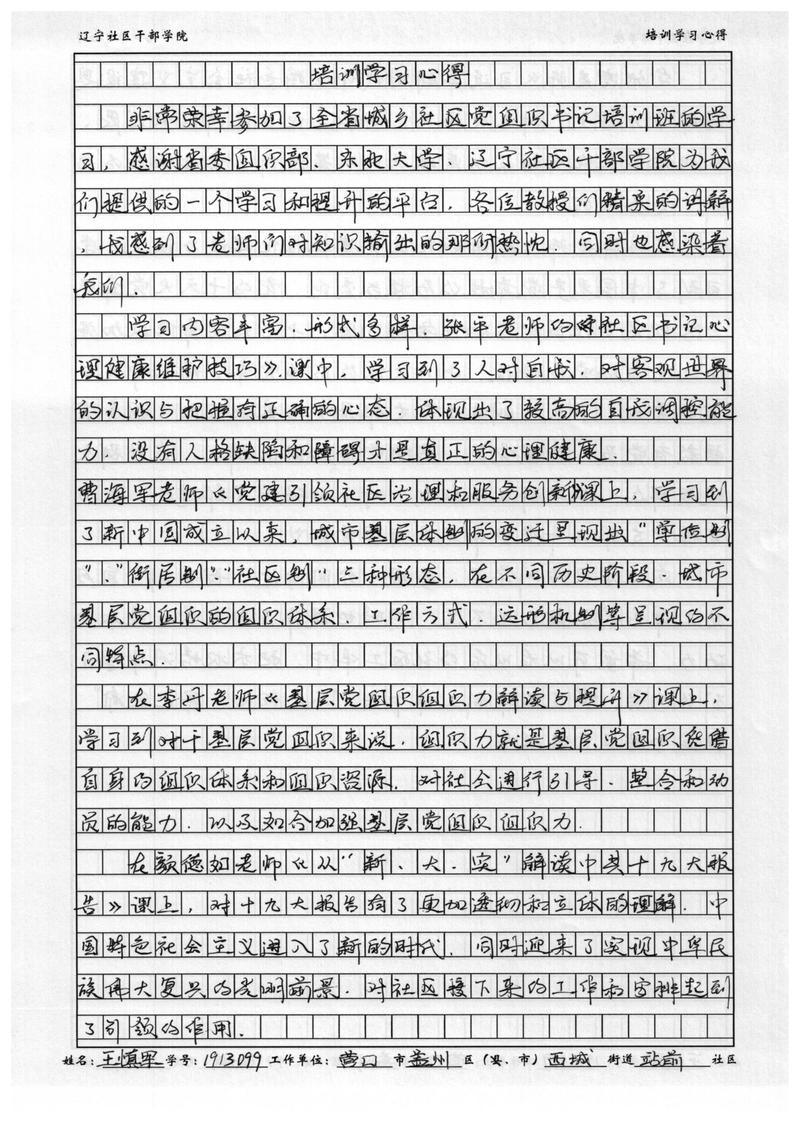 辽宁社区干部学院 培训学习心得
培训学习心得
非常荣幸参加了全省城乡社区党组织书记培训班的学
习，感谢省委组织部、东北大学、辽宁社区干部学院为我
们提供的一个学习和提升的平台，各位教授们精桌的讲解
，我感到了老师们对知识输出的那份热忱，同时也感染着
我们.
学习内容丰富，形式多样，张平老师的《社区书记心
理健康维护技巧》课中，学习到了人对自我，对客观世界
的认识与把握有正确的心态，体现出了较高的自我调控能
力，没有人格缺陷和障碍才是真正的心理健康.
曹海军老师《党建引领社区治理和服务创新》课上，学习到
了新中国成立以来，城市基层体制的变迁呈现出“单位制
”.“街居制”“社区制”三种形态，在不同历史阶段，城市
基层党组织的组织体系、工作方式、运形机制等呈现的不
同特点.
在李丹老师《基层党组织组织力解读与提升》课上，
学习到对于基层党组织来说，组织力就是基层党组织凭借
自身的组织体系和组织资源，对社会进行引导、整合和动
员的能力，以及如今加强基层党组织组织力.
在颜德如老师《从“新、大、实”解读中共十九大报
告》课上，对十九大报告有了更加透彻和立体的理解，中
国特色社会主义进入了新的时代，同时迎来了实现中华民
族伟大复兴的光明前景，对社区接下来的工作和安排起到
了引领的作用.
姓名：王慎军 学号：1913099 工作单位：营口 市 盖州 区（县、市）西城 街道 站前 社区